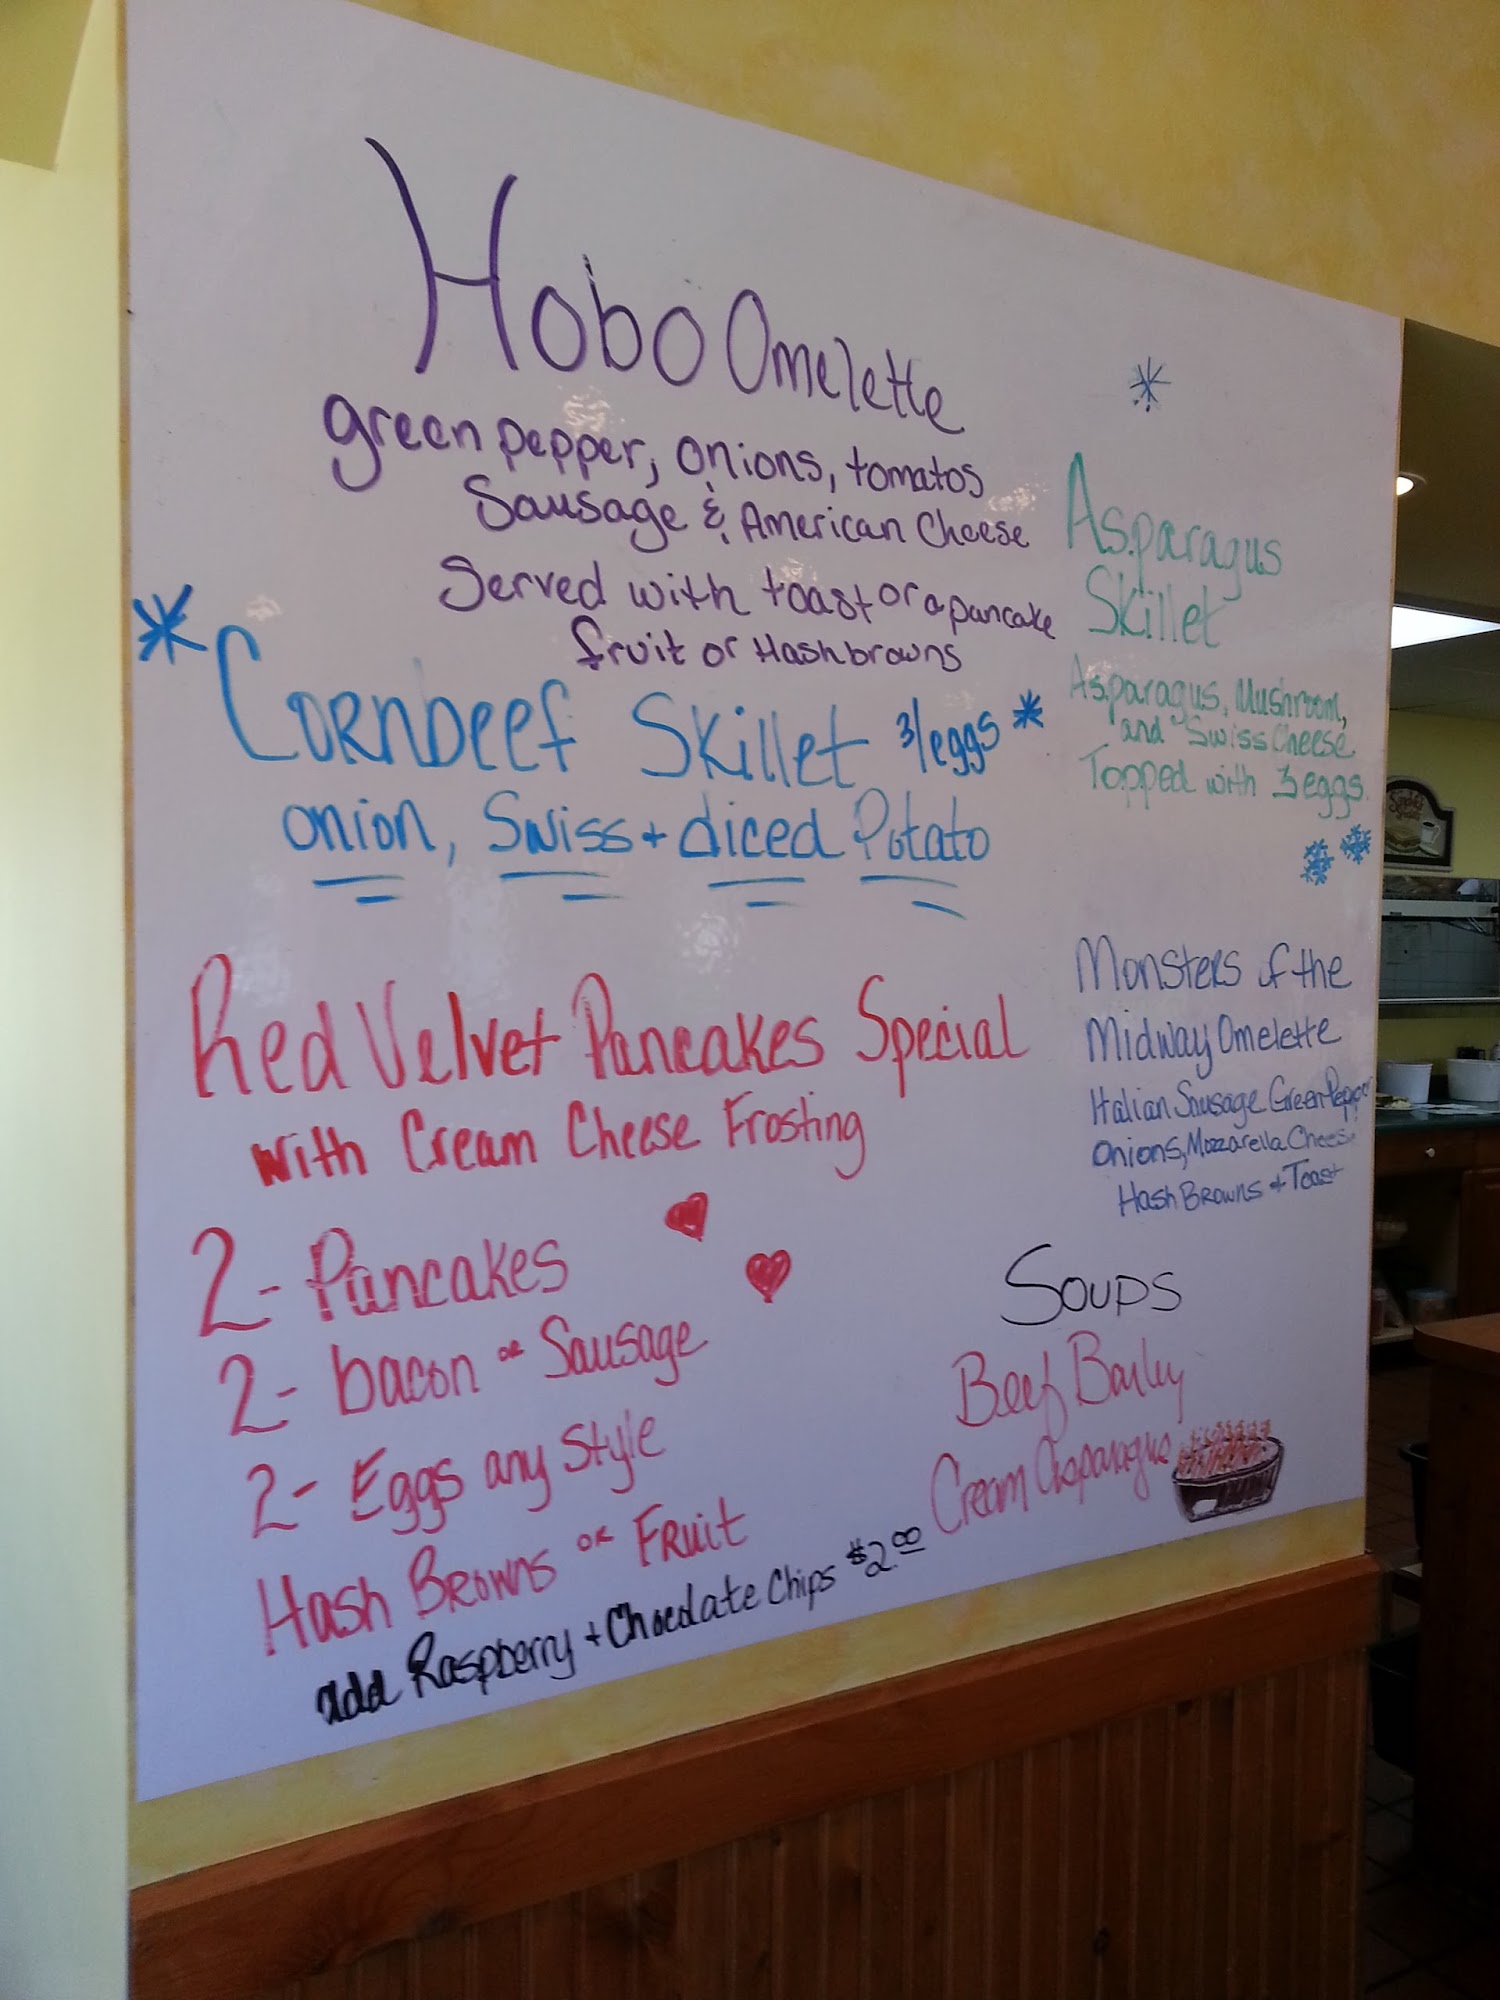 Hobo Omelette
green pepper, onions, tomatos
Sausage & American Cheese
Served with toast or a pancake
fruit or Hashbrowns
Cornbeef Skillet 3/eggs
onion, Swiss + diced Potato
Red Velvet Pancakes Special
with Cream Cheese Frosting
2- Pancakes
2- bacon or Sausage
2- Eggs any Style
Hash Browns or Fruit
add Raspberry + Chocolate Chips $2.00
Asparagus
Skillet
Asparagus, Mushroom,
and Swiss Cheese
Topped with 3 eggs
Monsters of the
Midway Omelette
Italian Sausage Green Pepper
Onions, Mozzarella Chees
Hash Browns + Toast
Soups
Beef Barley
Cream Asparagus